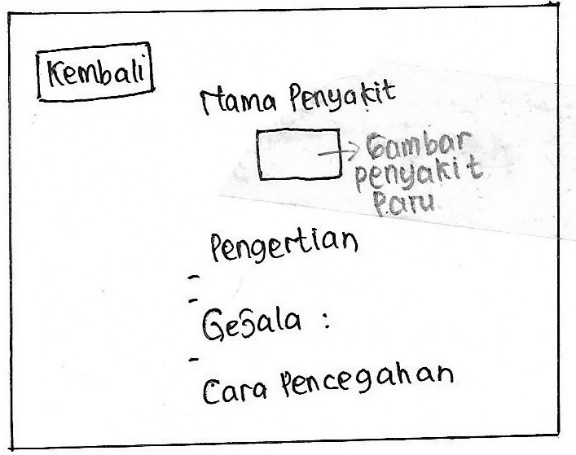 Kembali
Nama Penyakit
Gambar
penyakit
Paru
Pengertian
-
-
Gejala :
-
Cara Pencegahan